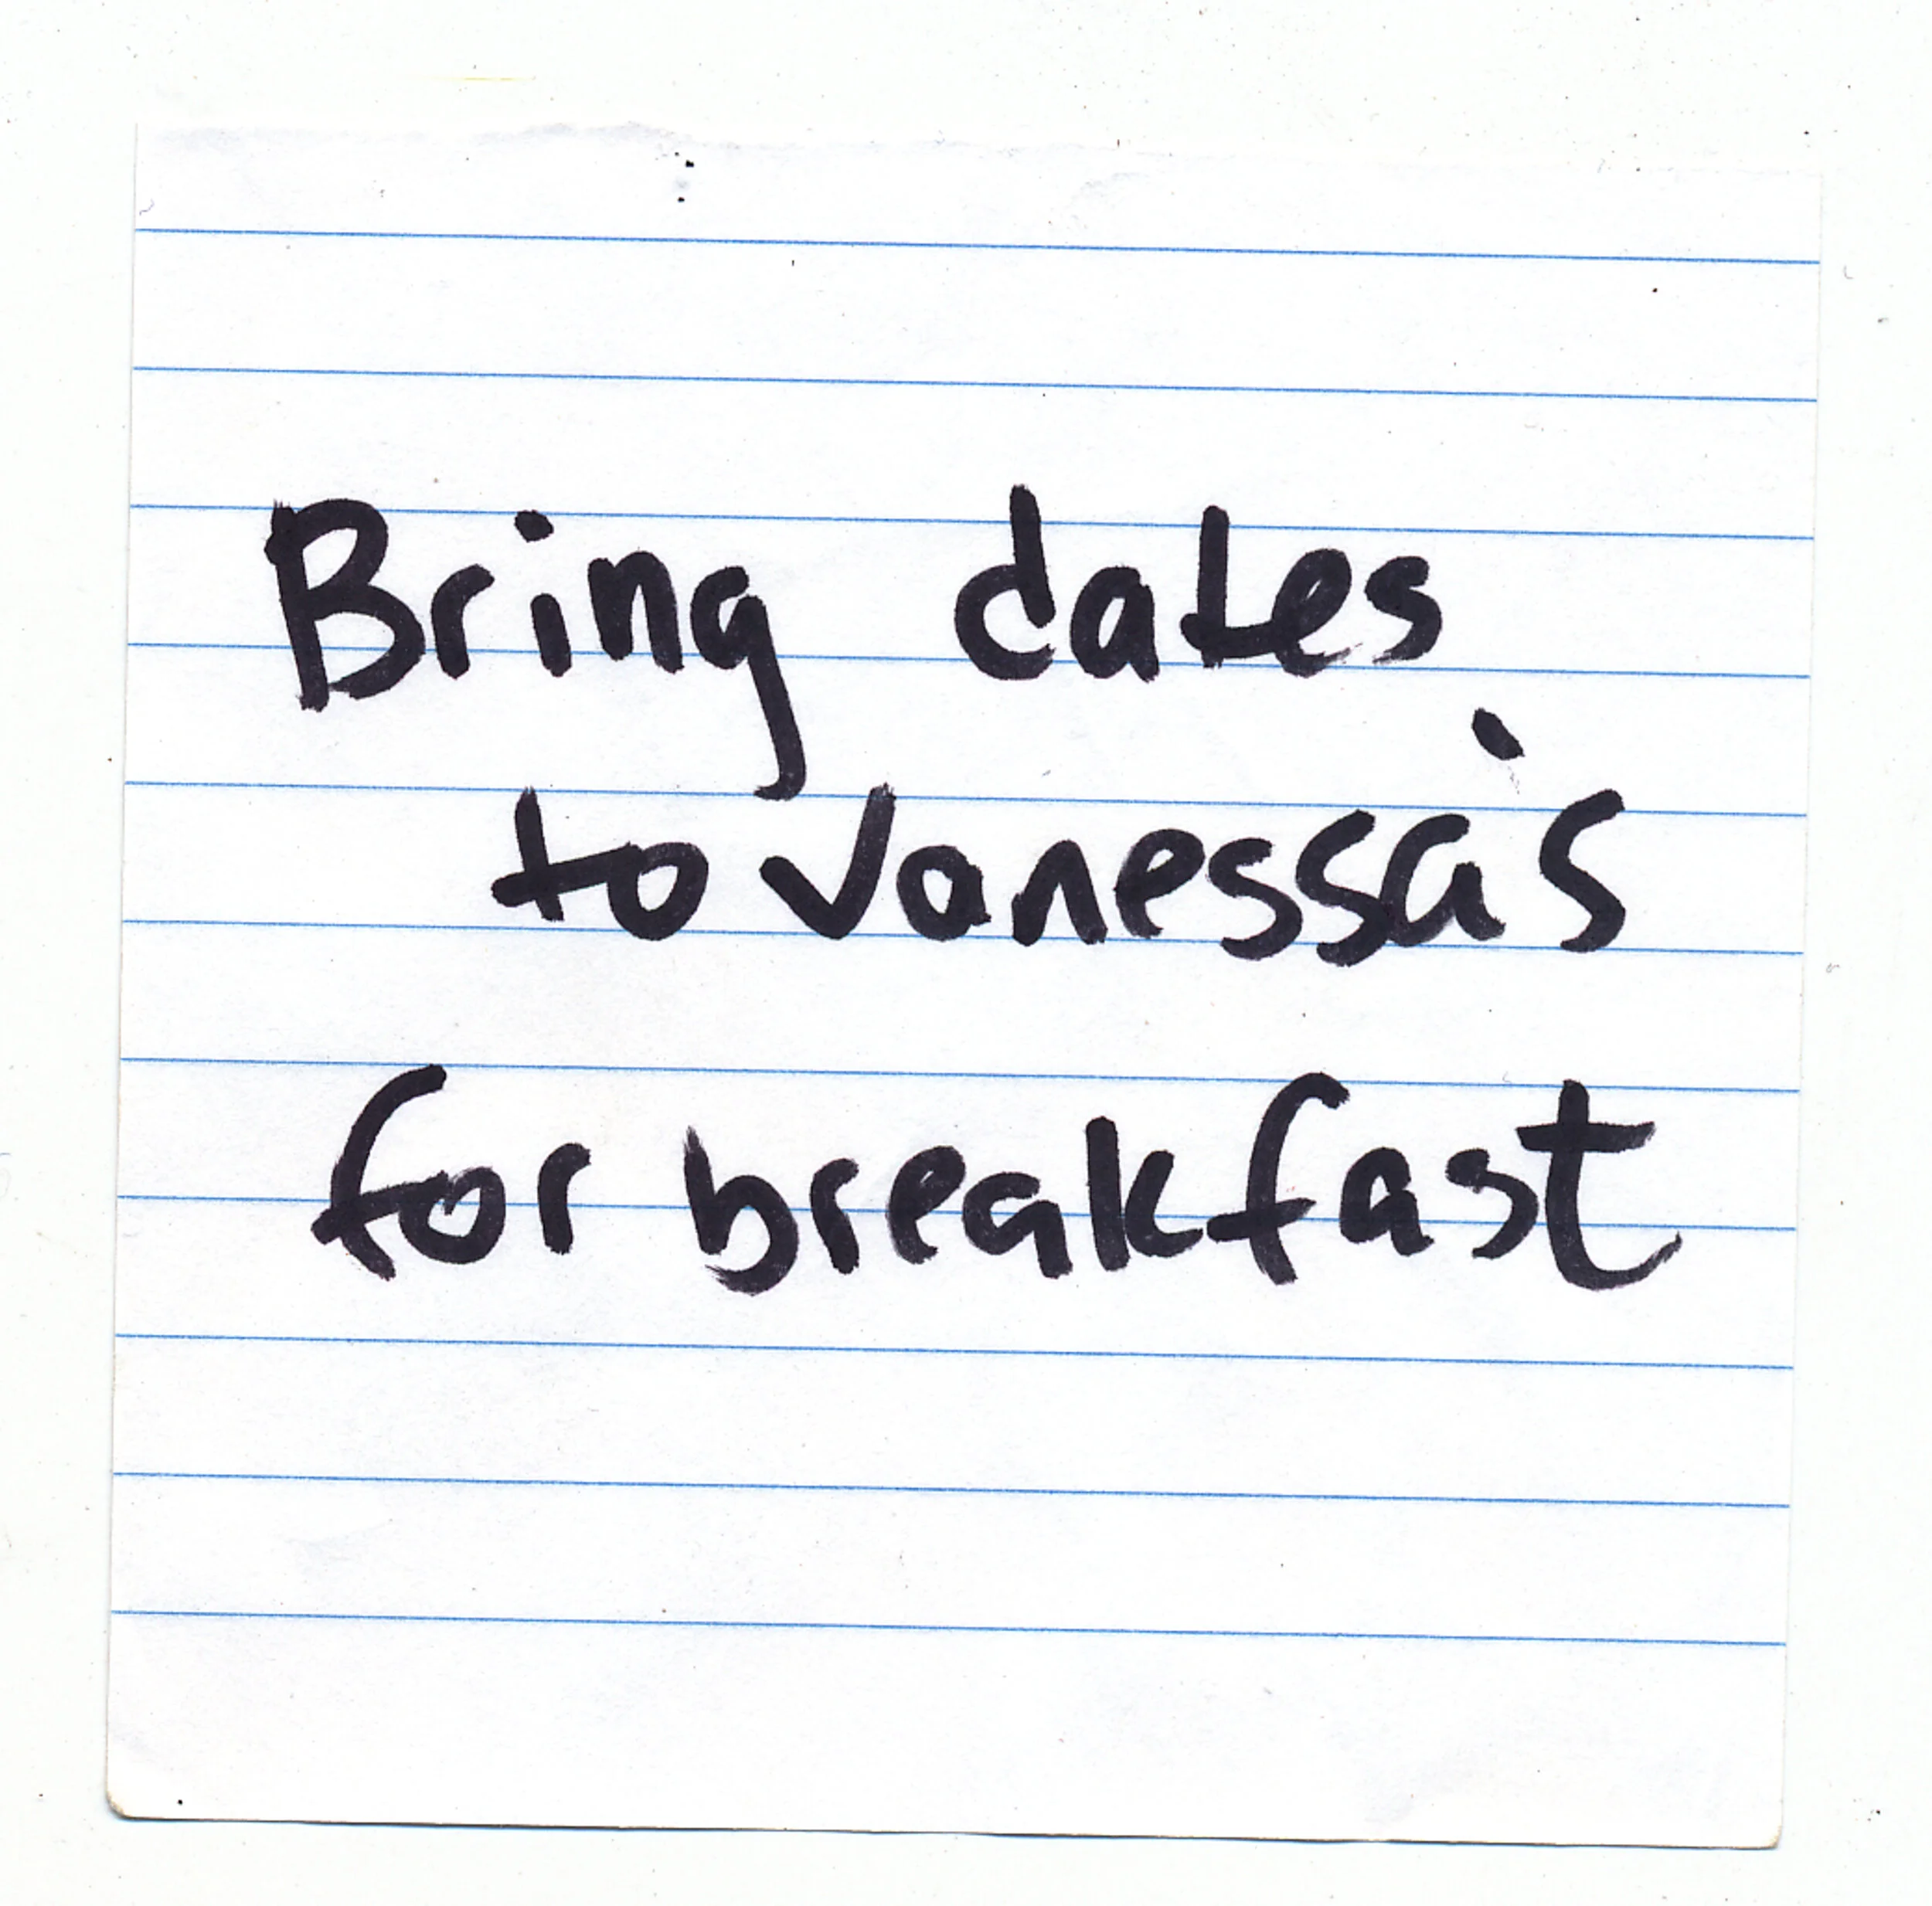 Bring dates
to Vanessa's
for breakfast